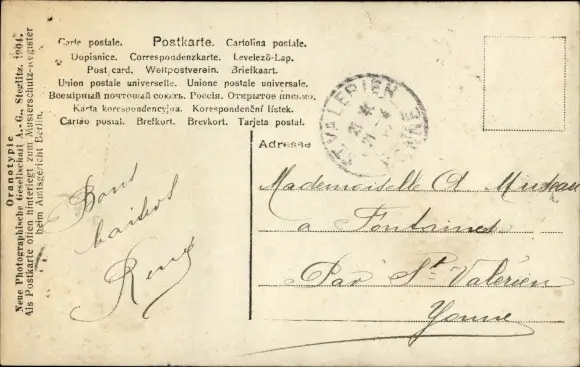 Carte postale. Postkarte. Cartolina postale.
Dopisnice. Correspondenzkarte. Levelező-Lap.
Post card. Weltpostverein. Briefkaart.
Union postale universelle. Unione postale universale.
Всемірный почтовый союзъ. Россія. Открытое письмо.
Karta korespondencyjna. Korespondenční lístek.
Cartão postal. Brefkort. Brevkort. Tarjeta postal.
Oranotypie
Neue Photographische Gesellschaft A.-G., Steglitz. 1904.
Als Postkarte offen hinterlegt zum Musterschutz-Register
beim Amtsgericht Berlin.
ST VALERIEN
YONNE
Adresse
Bons
baisers
René
Mademoiselle A Museau
a Fontaines
Par St Valérien
Yonne